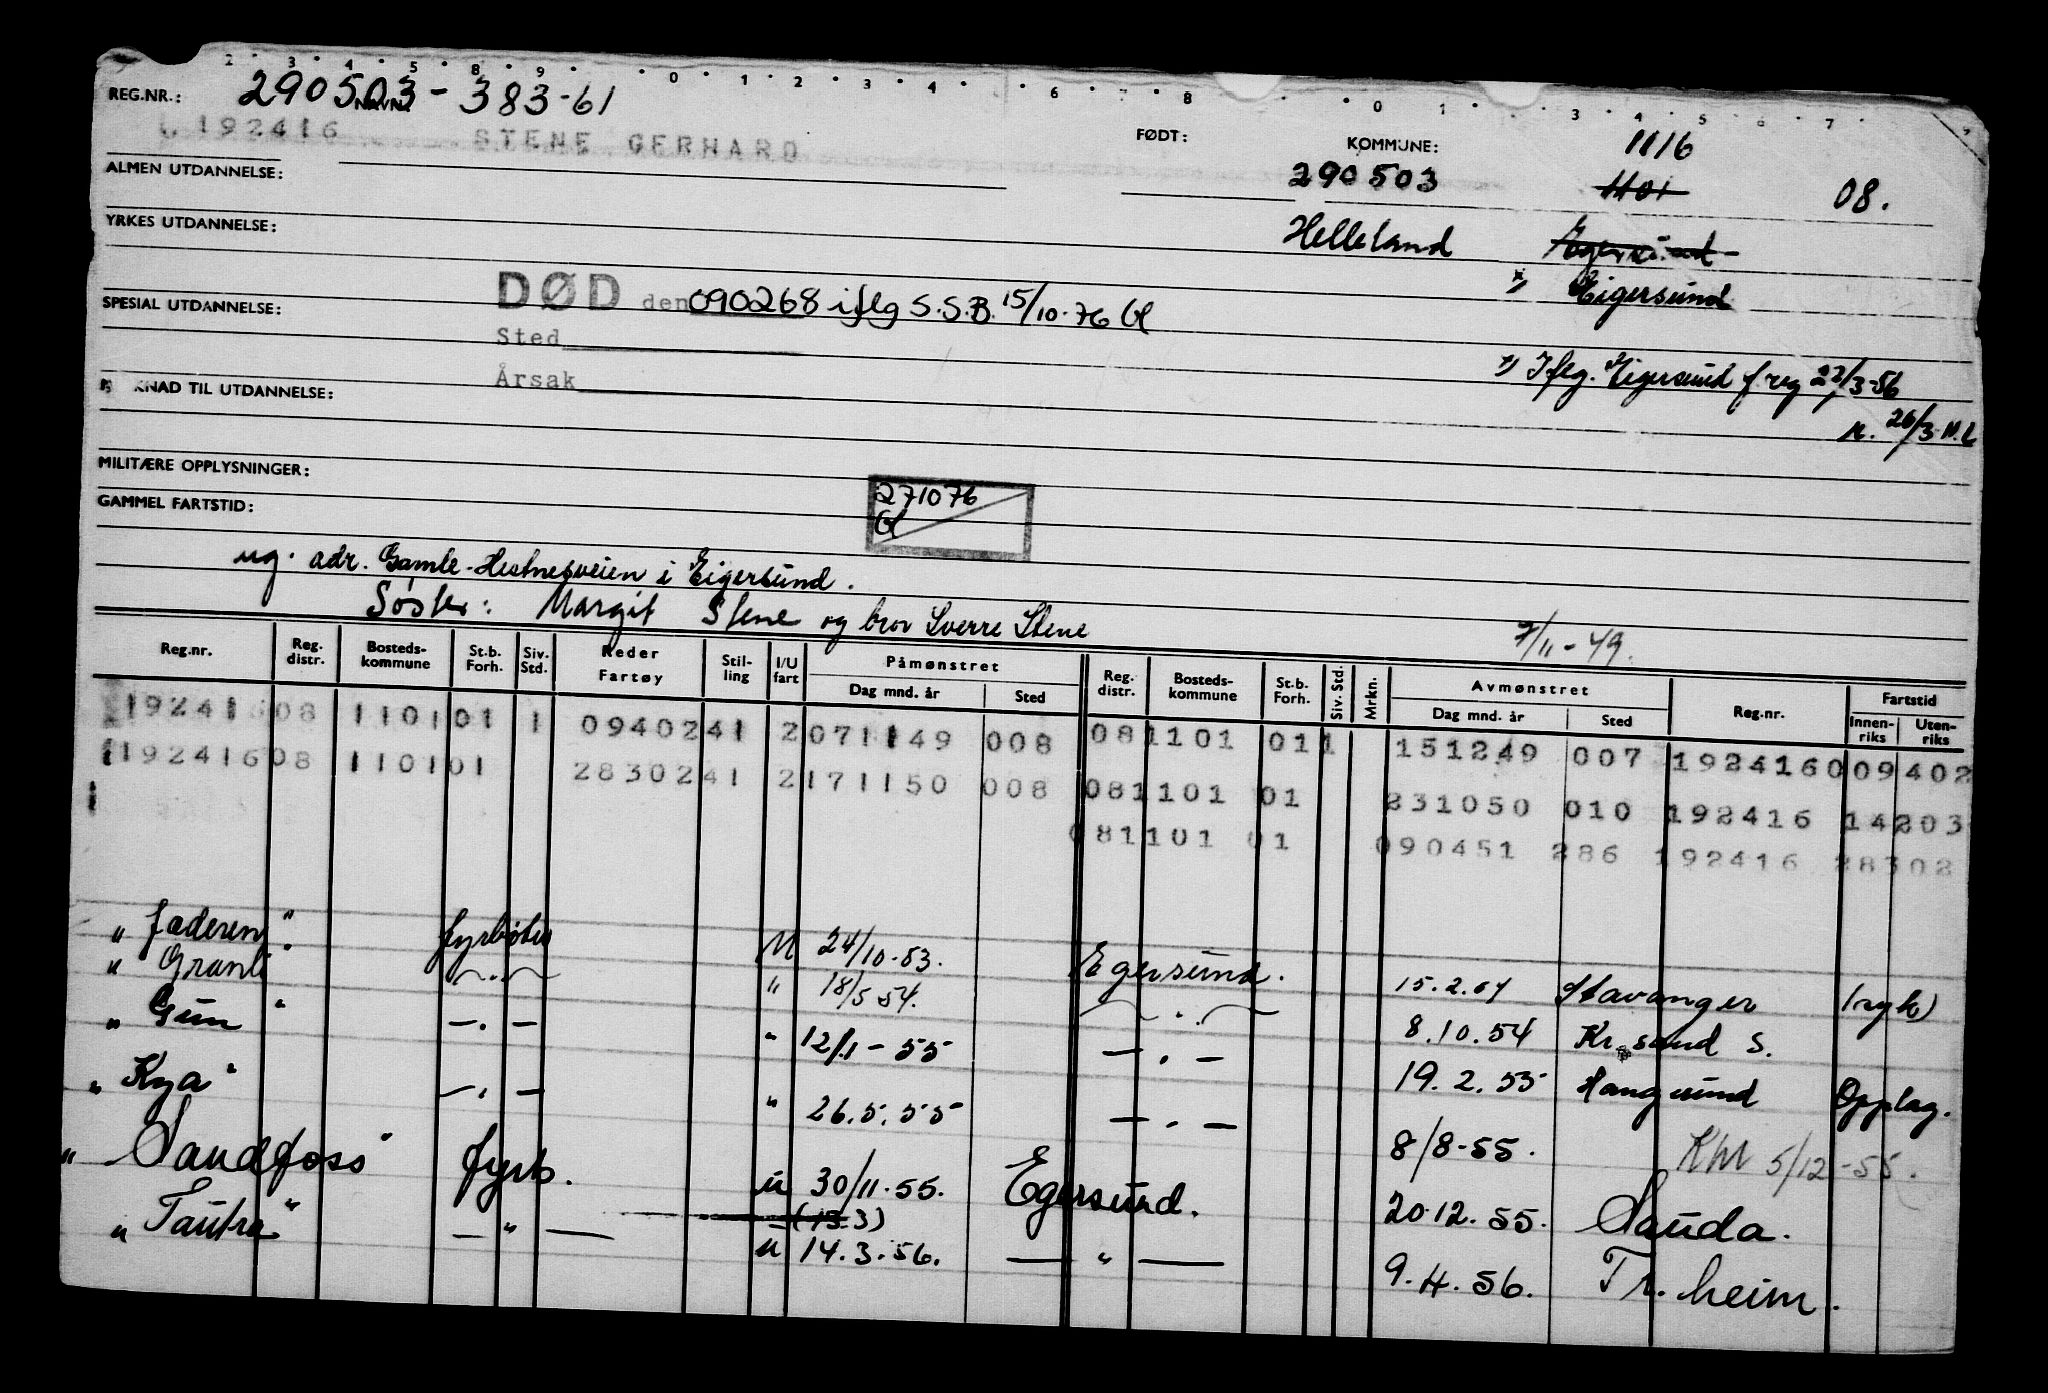 2 · 3 · 4 · 5 · 8 · 9 · · 0 · 1 · 2 · 3 · 4 · · 6 · 7 · 8 · · 0 1 · · 3 · 4 · 5 · 6 · 7 ·
REG.NR.: 290503 - 383-61
NAVN:
192416 STENE GERHARD FØDT: KOMMUNE: 1116
290503 1101 08.
ALMEN UTDANNELSE:
YRKES UTDANNELSE: Helleland Egersund
x) Eigersund
SPESIAL UTDANNELSE: DØD den 090268 iflg S.S.B. 15/10-76 Gl
Sted
Årsak
x) Iflg. Eigersund f.reg 22/3-56
KNAD TIL UTDANNELSE:
26/3
MILITÆRE OPPLYSNINGER:
271076
Gl
GAMMEL FARTSTID:
ug. adr. Gamle-Hestnesveien i Eigersund.
Søster: Margit Stene og bror Sverre Stene
7/11-49.
Reg.nr. Reg. distr. Bosteds-kommune St.b. Forh. Siv. Std. Reder Fartøy Stil-ling I/U fart Påmønstret Dag mnd. år Sted Reg. distr. Bosteds-kommune St.b. Forh. Siv. Std. Mrkn. Avmønstret Dag mnd. år Sted Reg.nr. Fartstid Innen-riks Uten-riks
192416 08 1101 01 1 0940241 2 071149 008 08 1101 01 1 151249 007 192416 0 09 402
192416 08 1101 01 2830241 2 171150 008 08 1101 01 231050 010 192416 14 203
08 1101 01 090451 286 192416 28302
" Jæderen " fyrbøter U 24/10-53. Egersund. 15.2.54 Stavanger (syk)
" Granli " — " — " 18/5 54. — " — 8.10.54 Kr.sand S.
" Gun " — " — " 12/1-55 — " — 19.2.55 Haugesund Opplag.
" Kya " — " — " 26.5.55 — " — 8/8-55. KM 5/12-55.
" Sandfoss " fyrb. u 30/11.55. Egersund. 20.12.55. Sauda.
(13.3)
" Tautra " — " — u 14.3.56. — " — 9.4.56. Tr.heim.